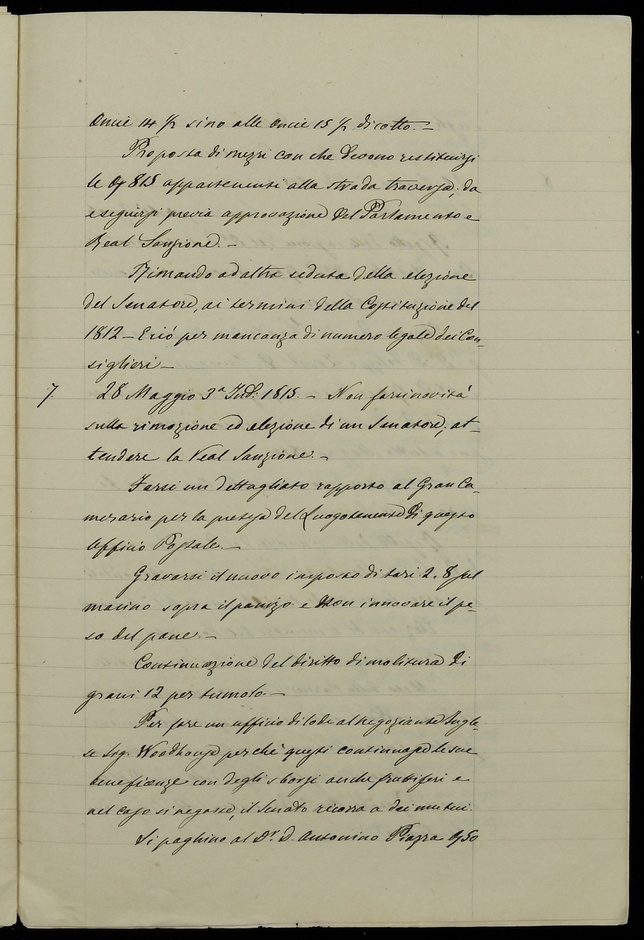 Oncie 14 1/2 sino alle Oncie 15 1/2 di cotto. –
Proposta di mezzi con che devono restituirsi
le 815 appartenenti alla strada traversa, da
eseguirsi previa approvazione del Parlamento e
Real Sanzione. –
Rimando ad altra seduta della elezione
del Senatore, ai termini della Costituzione del
1812 – E ciò per mancanza di numero legale dei Con-
siglieri –
7. 28 Maggio 3ª Ind: 1815. – Non farsi novità
sulla rimozione ed elezione di un Senatore, at-
tendere la Real Sanzione. –
Farsi un dettagliato rapporto al Gran Ca-
merario per la pretesa del Luogotenente di questo
Officio Postale. –
Gravarsi il nuovo imposto di tari 2. 8 pel
macino sopra il panizzo e non innovare il pe-
so del pane. –
Continuazione del diritto di molitura di
grani 12 per tumolo –
Per fare un ufficio di lode al negoziante Ingle-
se Sig. Woodhouse perchè questi continuasse le sue
beneficenze con degli sborsi anche fruttiferi e
nel caso si negasse, il Senato ricorra a dei mutui.
Si paghino al Dr. D. Antonino Piazza 50